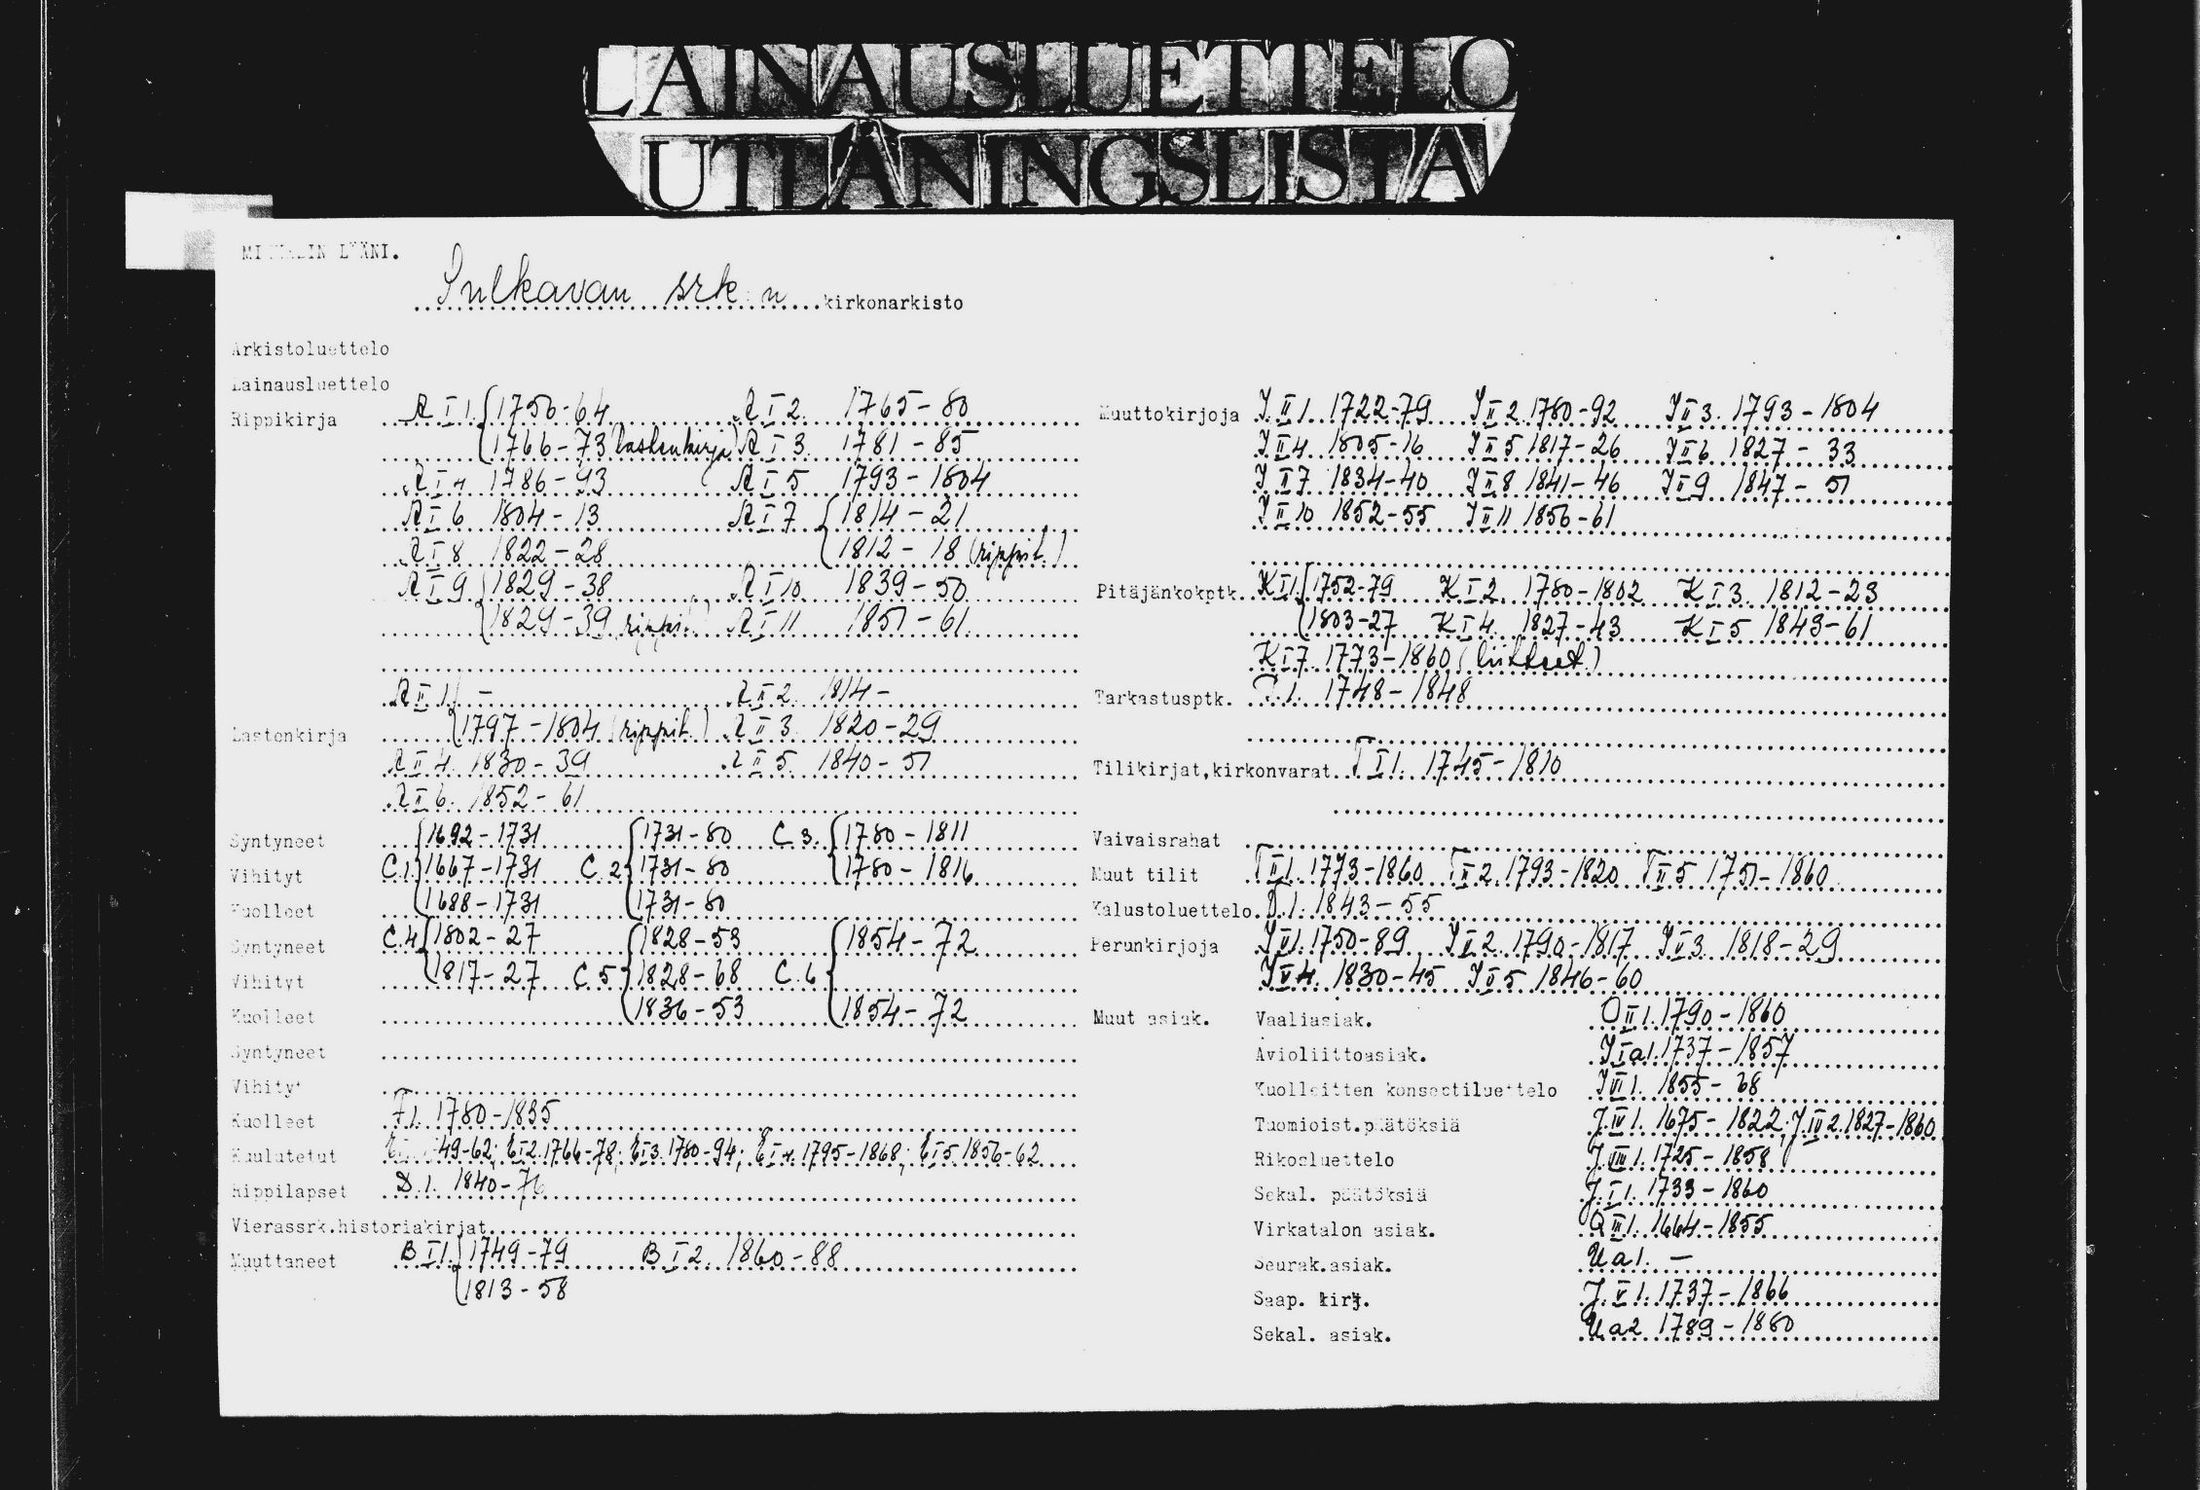 LAINAUSLUETTELO
UTLÅNINGSLISTA
LÄÄNI.
Sulkavan srk:n kirkonarkisto
Arkistoluettelo
Lainausluettelo
Rippikirja A I 1. 1750-64 A I 2. 1765-80
1766-73 (lastenkirja) A I 3. 1781-85
A I 4 1786-93 A I 5 1793-1804
A I 6 1804-13 A I 7 1814-21
A I 8 1822-28 1812-18 (rippil.)
A I 9 1829-38 A I 10 1839-50
1829-39 rippil. A I 11 1851-61
A II 1. - A II 2. 1814-
Lastenkirja 1797-1804 (rippil.) A II 3. 1820-29
A II 4. 1830-39 A II 5. 1840-51
A II 6. 1852-61
Syntyneet 1692-1731 1731-80 C.3. 1780-1811
Vihityt C.1. 1667-1731 C.2 1731-80 1780-1816
Kuolleet 1688-1731 1731-80
Syntyneet C.4 1802-27 1828-53 1854-72
Vihityt 1817-27 C.5 1828-68 C.6
Kuolleet 1836-53 1854-72
Syntyneet
Vihityt
Kuolleet F1. 1780-1835
Kuulutetut 49-62; E I 2. 1766-78; E I 3. 1780-94; E I 4. 1795-1868; E I 5 1856-62
Rippilapset D.1. 1840-76
Vierassrk.historiakirjat
Muuttaneet B I 1. 1749-79 B I 2. 1860-88
1813-58
Muuttokirjoja J II 1. 1722-79 J II 2. 1780-92 J II 3. 1793-1804
J II 4 1805-16 J II 5 1817-26 J II 6 1827-33
J II 7 1834-40 J II 8 1841-46 J II 9 1847-51
J II 10 1852-55 J II 11 1856-61
Pitäjänkokptk. K I 1. 1752-79 K I 2. 1780-1802 K I 3. 1812-23
1803-27 K I 4. 1827-43 K I 5 1843-61
K I 7. 1773-1860 (liitteet.)
Tarkastusptk. 1. 1748-1848
Tilikirjat,kirkonvarat T I 1. 1745-1810
Vaivaisrahat
Muut tilit T II 1. 1773-1860 T II 2. 1793-1820 T II 5 1751-1860
Kalustoluettelo 1. 1843-55
Perunkirjoja J V 1. 1750-89 J V 2. 1790-1817 J V 3. 1818-29
J V 4. 1830-45 J V 5 1846-60
Muut asiak. Vaaliasiak. O II 1. 1790-1860
Avioliittoasiak. J I a 1. 1737-1857
Kuolleitten konseptiluettelo J VI 1. 1855-68
Tuomioist.päätöksiä J. IV 1. 1675-1822; J. IV 2. 1827-1860
Rikosluettelo J. VIII 1. 1725-1858
Sekal. päätöksiä J. I 1. 1733-1860
Virkatalon asiak. Q III 1. 1664-1855
Seurak.asiak. U a 1. -
Saap. kirj. J. V 1. 1737-1866
Sekal. asiak. U a 2 1789-1880